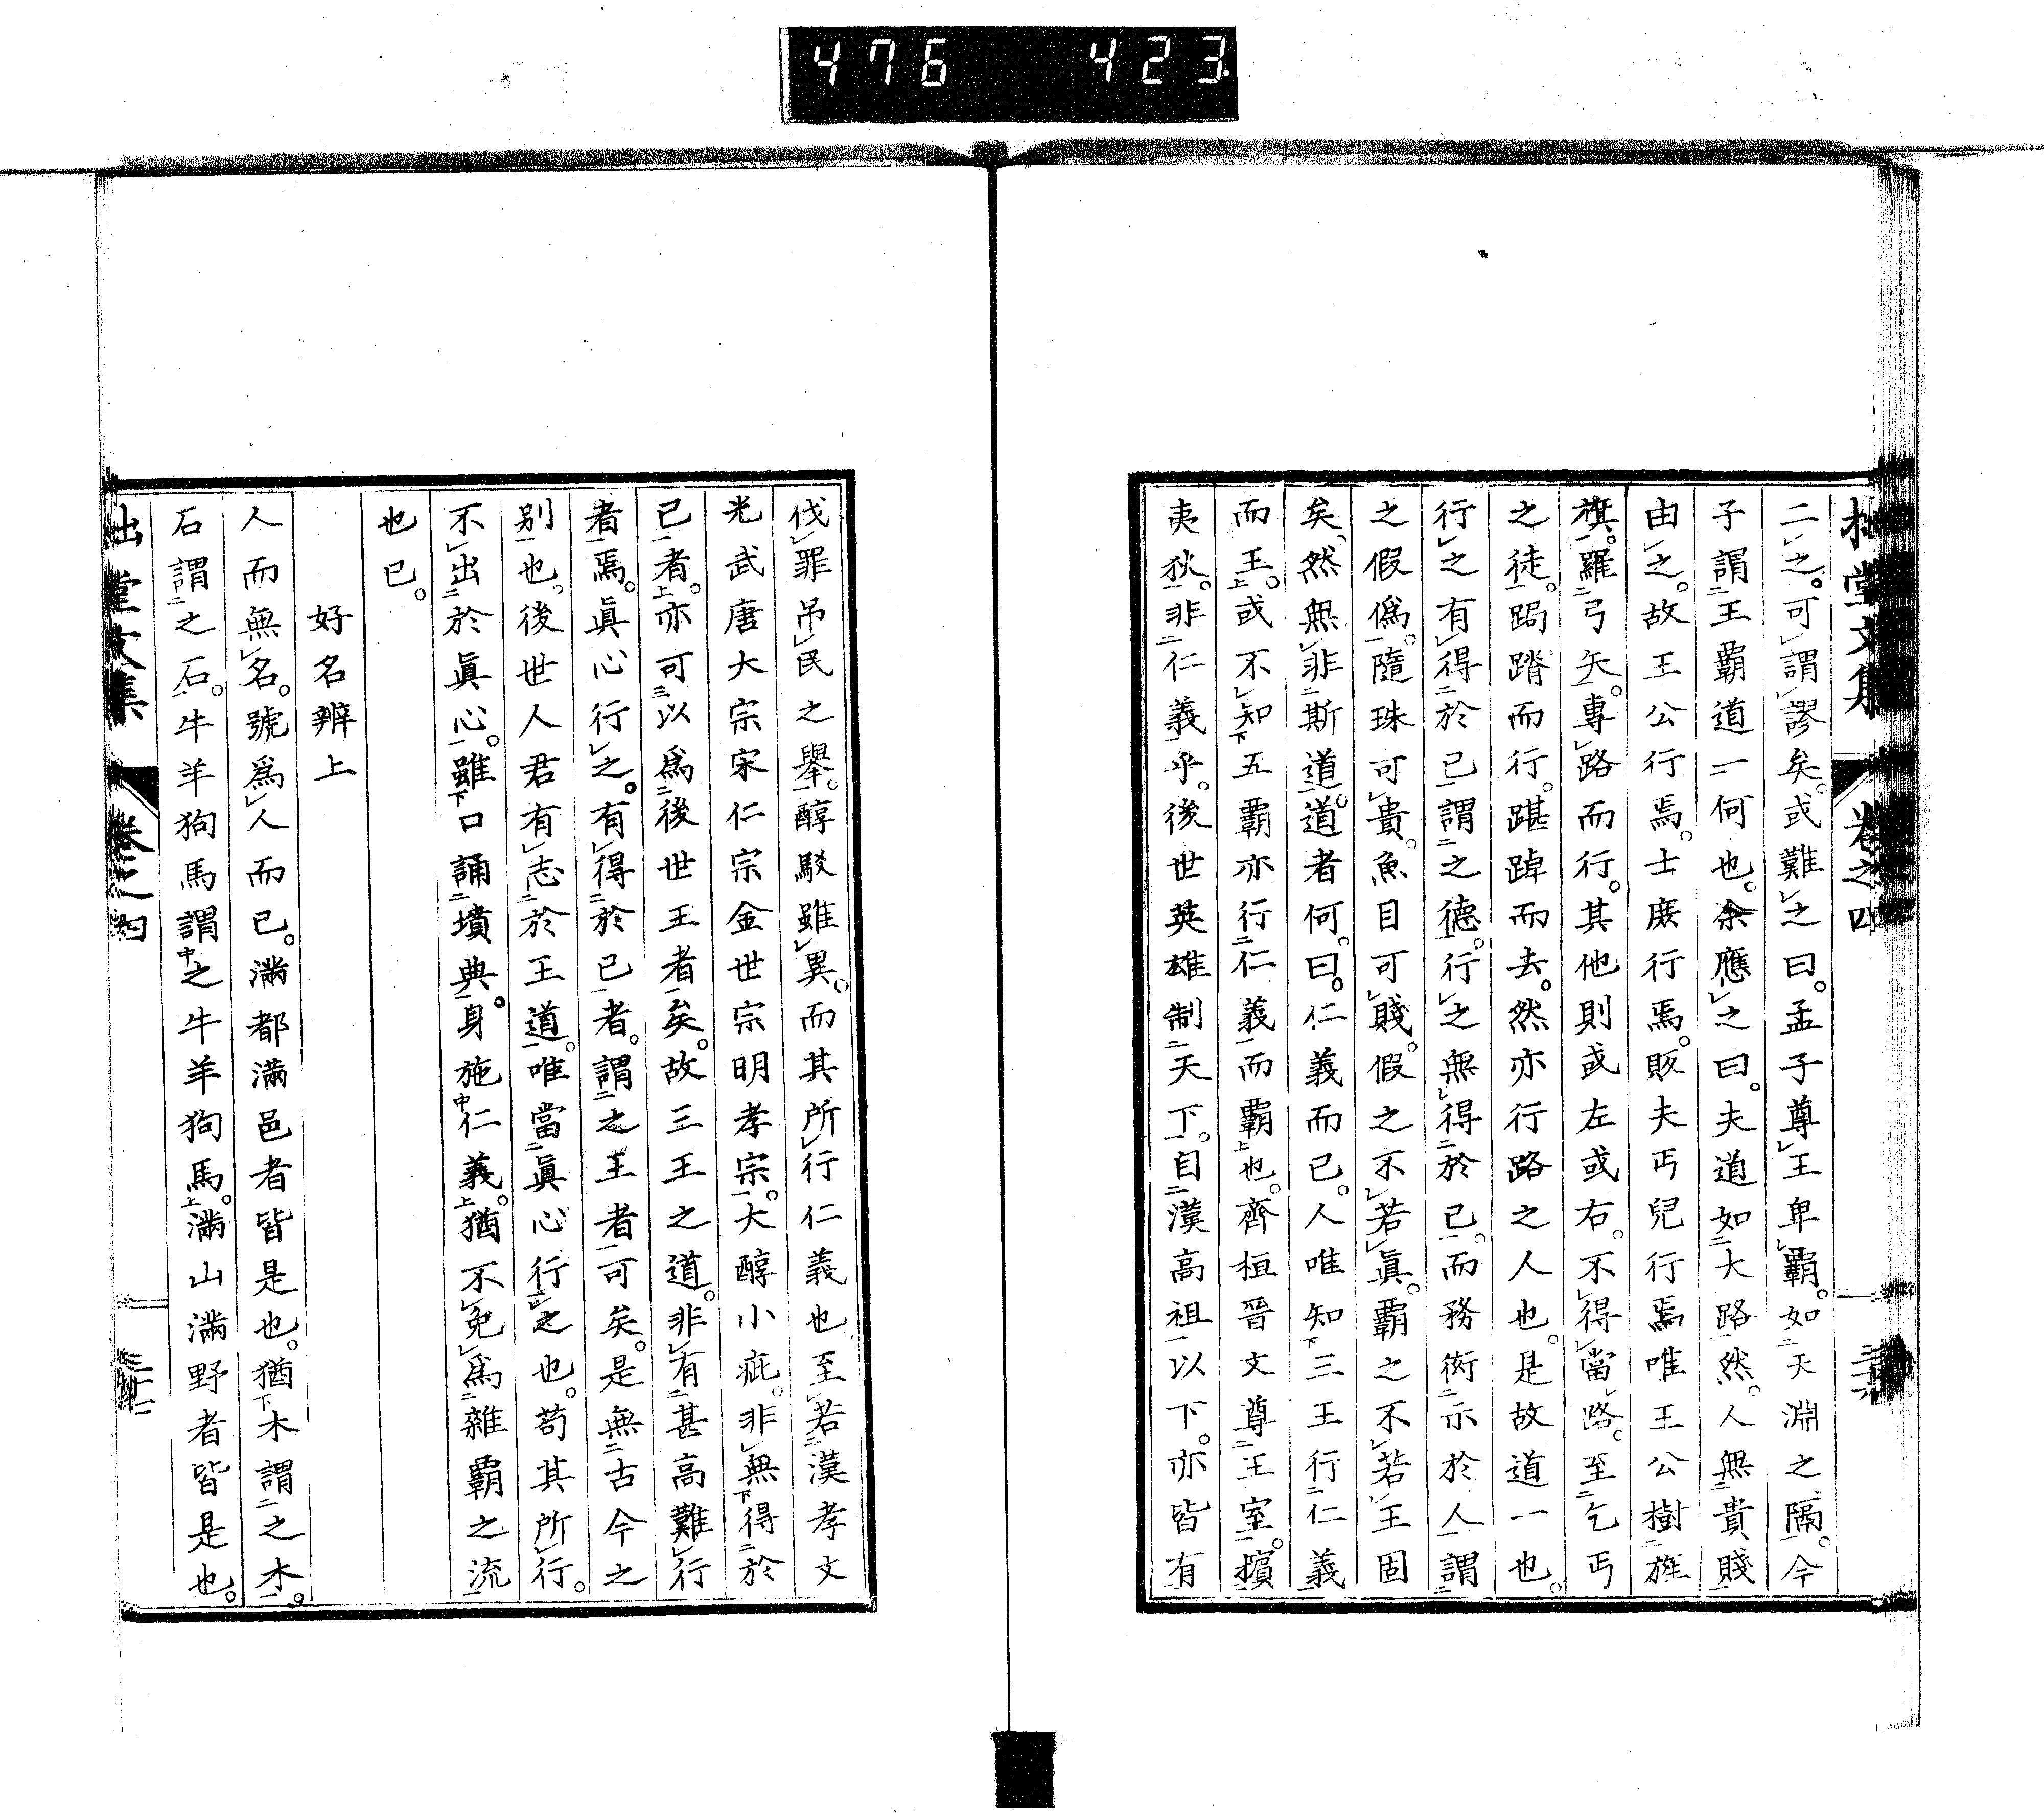 476 423
拙堂文集 卷之四
二之。可謂謬矣。或難之曰。孟子尊王卑覇。如天淵之隔。今
子謂王覇道一何也。余應之曰。夫道如大路然。人無貴賤
由之。故王公行焉。士庶行焉。販夫丐兒行焉唯王公樹旌
旗。羅弓矢。專路而行。其他則或左或右。不得當路。至乞丐
之徒。跼蹐而行。踸踔而去。然亦行路之人也。是故道一也。
行之有得於已謂之德。行之無得於已。而務衒示於人謂
之假僞。隨珠可貴。魚目可賤。假之不若眞。覇之不若王固
矣。然無非斯道。道者何。曰。仁義而已。人唯知三王行仁義
而王。或不知五覇亦行仁義而覇也。齊桓晉文尊王室。擯
夷狄。非仁義乎。後世英雄制天下。自漢高祖以下。亦皆有
伐罪吊民之舉。醇駁雖異。而其所行仁義也至若漢孝文
光武唐大宗宋仁宗金世宗明孝宗。大醇小疵。非無得於
已者。亦可以爲後世王者矣。故三王之道。非有甚高難行
者焉。眞心行之。有得於已者。謂之王者可矣。是無古今之
别也。後世人君有志於王道。唯當眞心行之也。苟其所行。
不出於眞心。雖口誦墳典。身施仁義。猶不免爲雜覇之流
也已。
好名辨上
人而無名。號爲人而已。滿都滿邑者皆是也。猶木謂之木。
石謂之石。牛羊狗馬謂之牛羊狗馬。滿山滿野者皆是也。
堂文集 卷之四